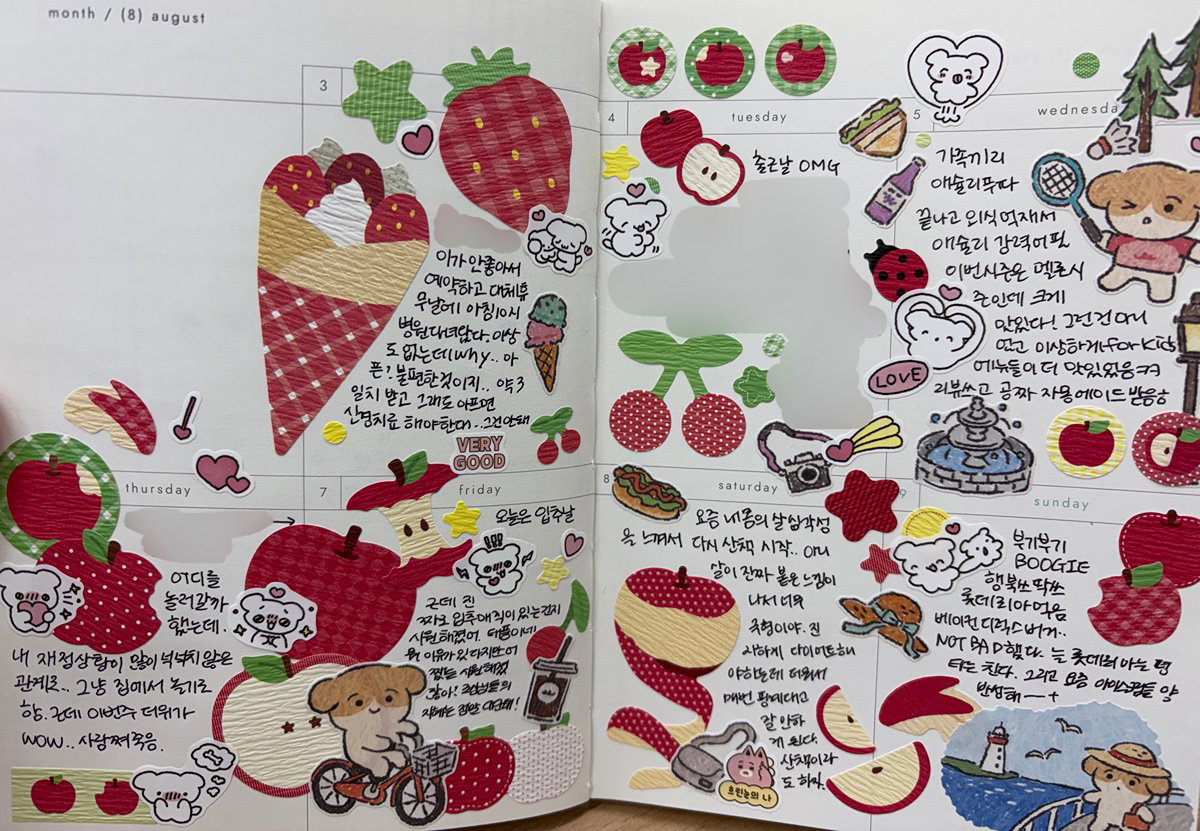 month / (8) august
3
이가 안좋아서
예약하고 대체휴
무날에 아침 10시
병원 다녀왔다. 이상
도 없는데 why.. 아
픈? 불편한것이지.. 약 3
일치 받고 그래도 아프면
신경치료 해야한대.. 그건 안돼
VERY
GOOD
4
tuesday
출근날 OMG
5
wednesday
가족끼리
애슐리푸따
끝나고 외식먹재서
애슐리 강력어필
이번시즌은 멜론시
즌인데 크게
맛있다! 그런건 아니
었고 이상하게 for kids
메뉴들이 더 맛있었음ㅋㅋ
리뷰쓰고 공짜 자몽에이드 받음
LOVE
thursday
어디를
놀러갈까
했는데.
내 재정상황이 많이 넉넉치 않은
관계로.. 그냥 집에서 놀기로
함. 근데 이번주 더위가
wow.. 사람쪄죽음.
7
friday
오늘은 입추날
근데 진
짜로 입추매직이 있는건지
시원해졌어.
8
saturday
요즘 내 몸의 살심각성
을 느껴서 다시 산책 시작.. 아니
살이 진짜 붙은 느낌이
나서 더욱
극혐이야. 진
지하게 다이어트해
야하는데 더워서
매번 핑계대고
잘 안하
게 된다.
산책이라
도 하자.
흐린눈의 나
9
sunday
부기부기
BOOGIE
행복쓰 딱쓰
롯데리아 먹음
베이컨 디럭스버거..
NOT BAD 했다. 늘 롯데리아는 평
타는 친다. 그리고 요즘 아이스크림 양
반성해 ㅡ +